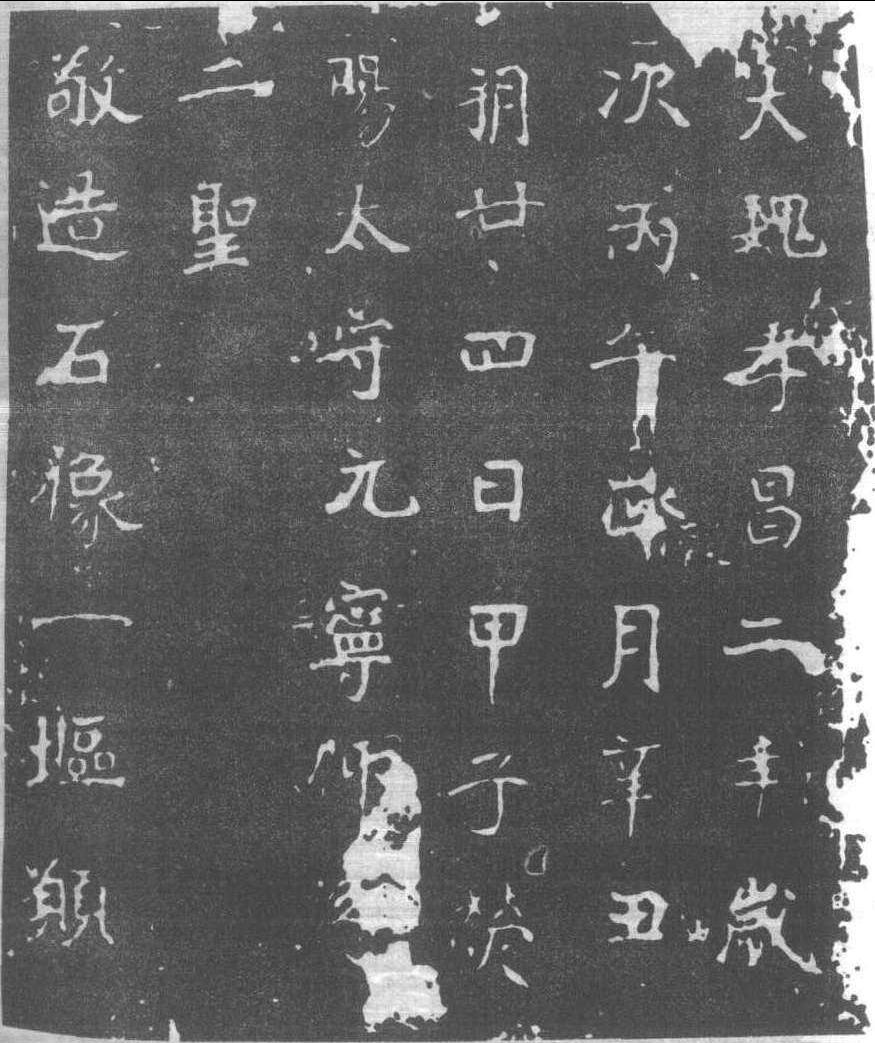 大魏孝昌二年歲
次丙午正月辛丑
朔廿四日甲子熒
暘太守元寧仰
二聖
敬造石像一塸願